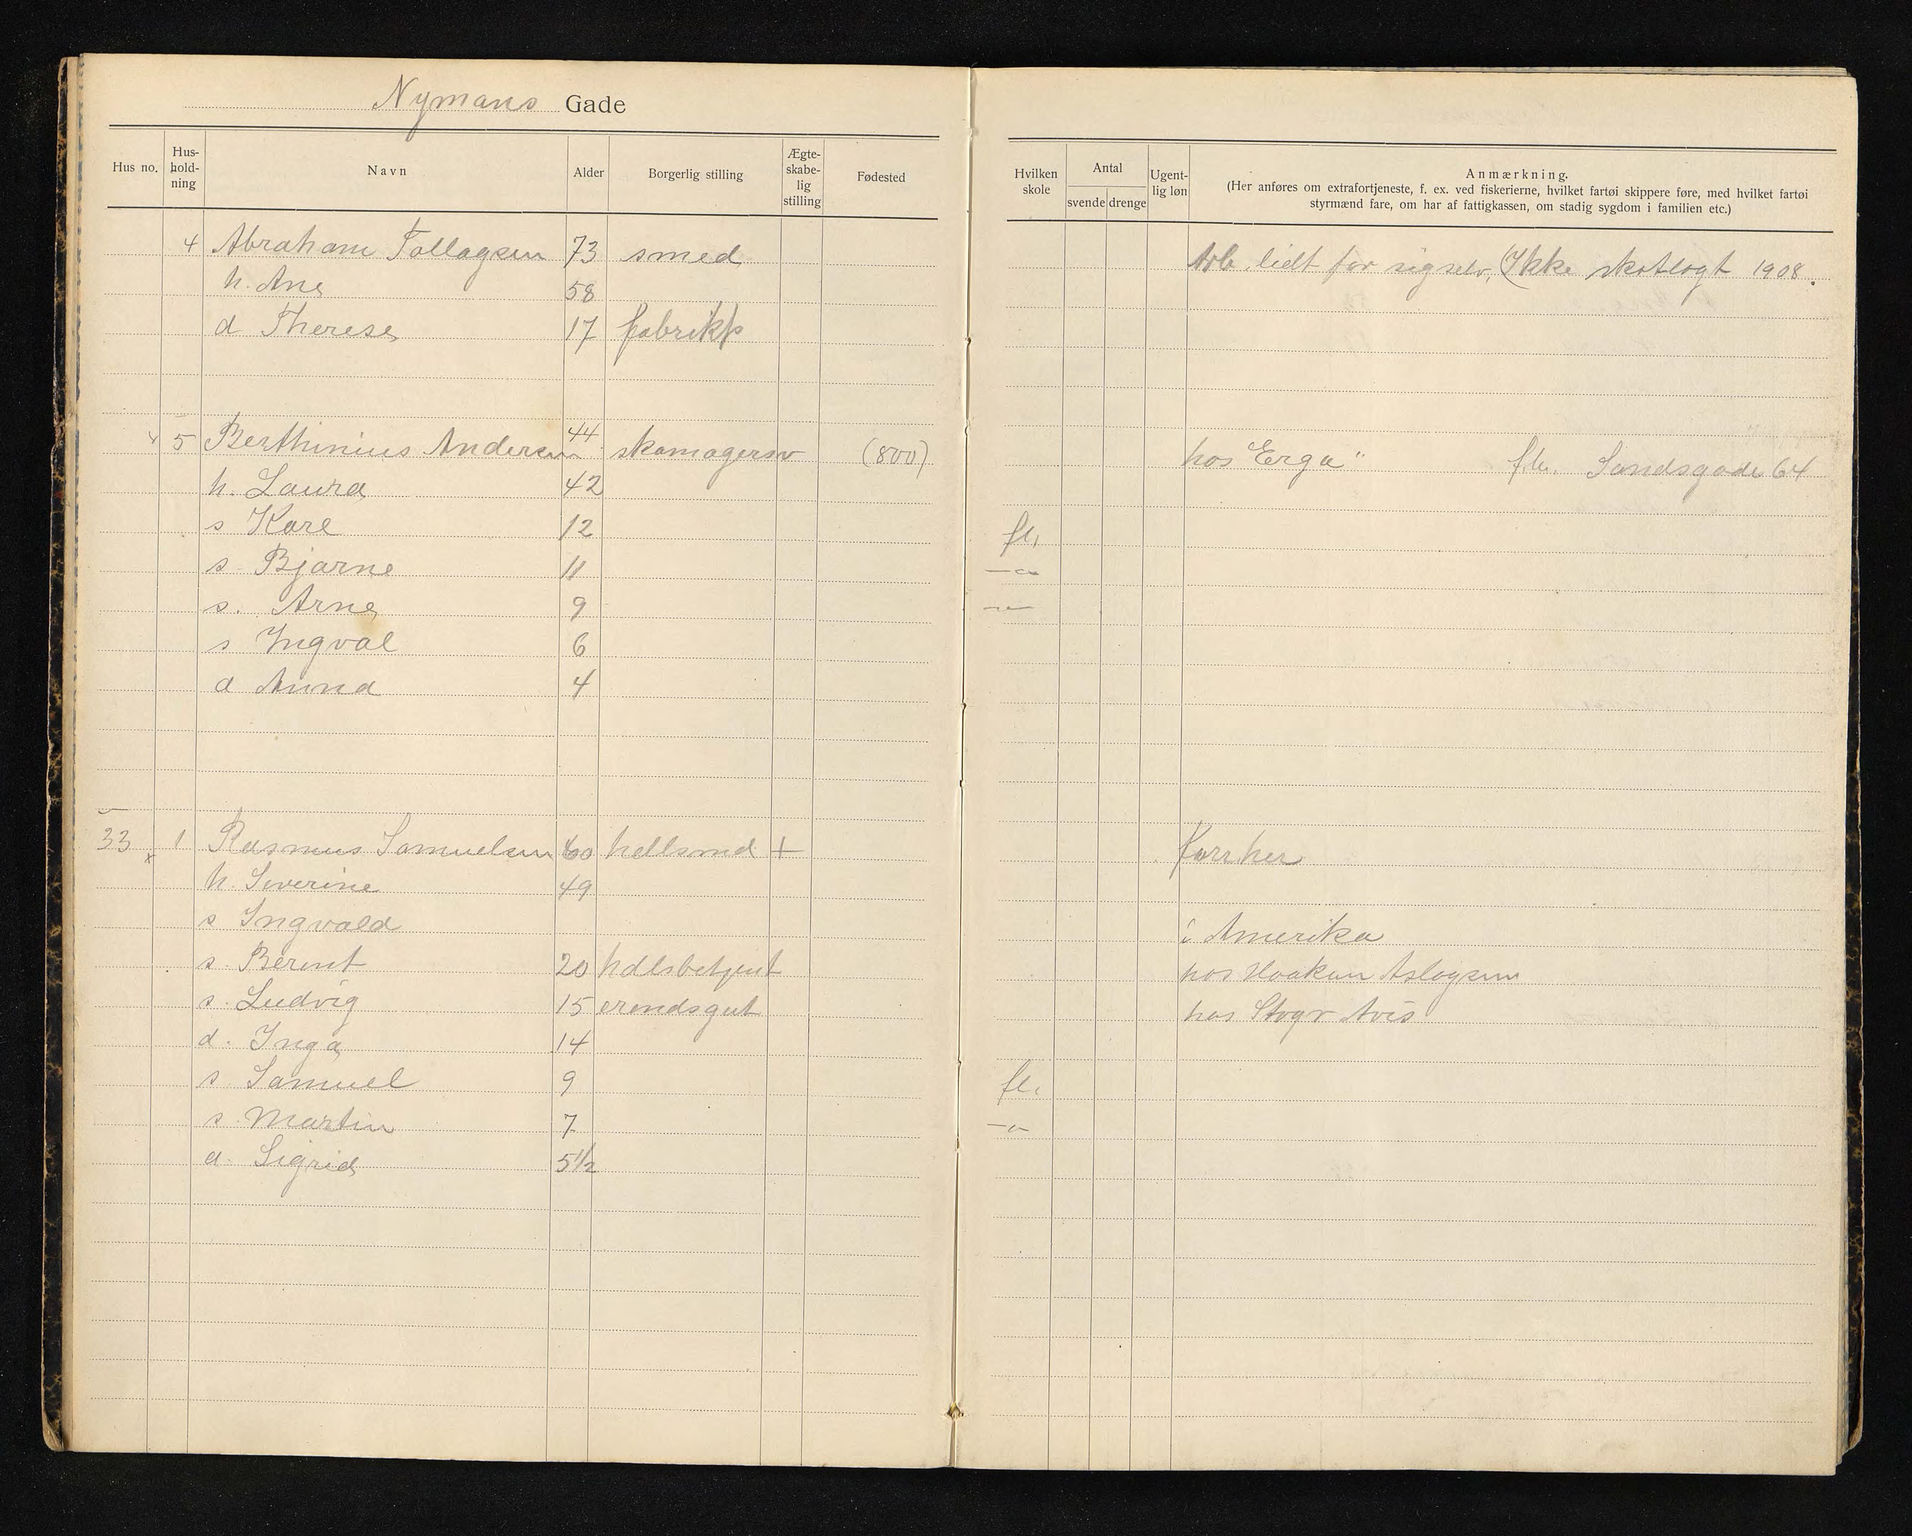 Nymans Gade
Hus no. Hus-hold-ning Navn Alder Borgerlig stilling Ægte-skabe-lig stilling Fødested Hvilken skole Antal svende drenge Ugent-lig løn Anmærkning.
(Her anføres om extrafortjeneste, f. ex. ved fiskerierne, hvilket fartøi skippere føre, med hvilket fartøi
styrmænd fare, om har af fattigkassen, om stadig sygdom i familien etc.)
4 Abraham Tollagsen 73 smed Arb. lidt for sigselv, (Ikke skatlagt 1908.
h. Ane 58
d Therese 17 fabrikk
5 Berthinius Andersen 44 skomagersv (800) hos "Erga" Sandsgade 64
h. Laura 42
s Kare 12 fl.
s. Bjarne 11 —"—
s. Arne 9 —"—
s Ingval 6
d Anna 4
33 1 Rasmus Samuelsen 60 + forr her
h. Severine 49
s Ingvald i Amerika
s. Berent 20 hdlsbetjent hos Haakon Aslagsen
s. Ludvig 15 erendsgut hos Stvgr Avis
d. Inga 14
s Samuel 9 fl.
s. Martin 7 —"—
d. Sigrid 5 1/2